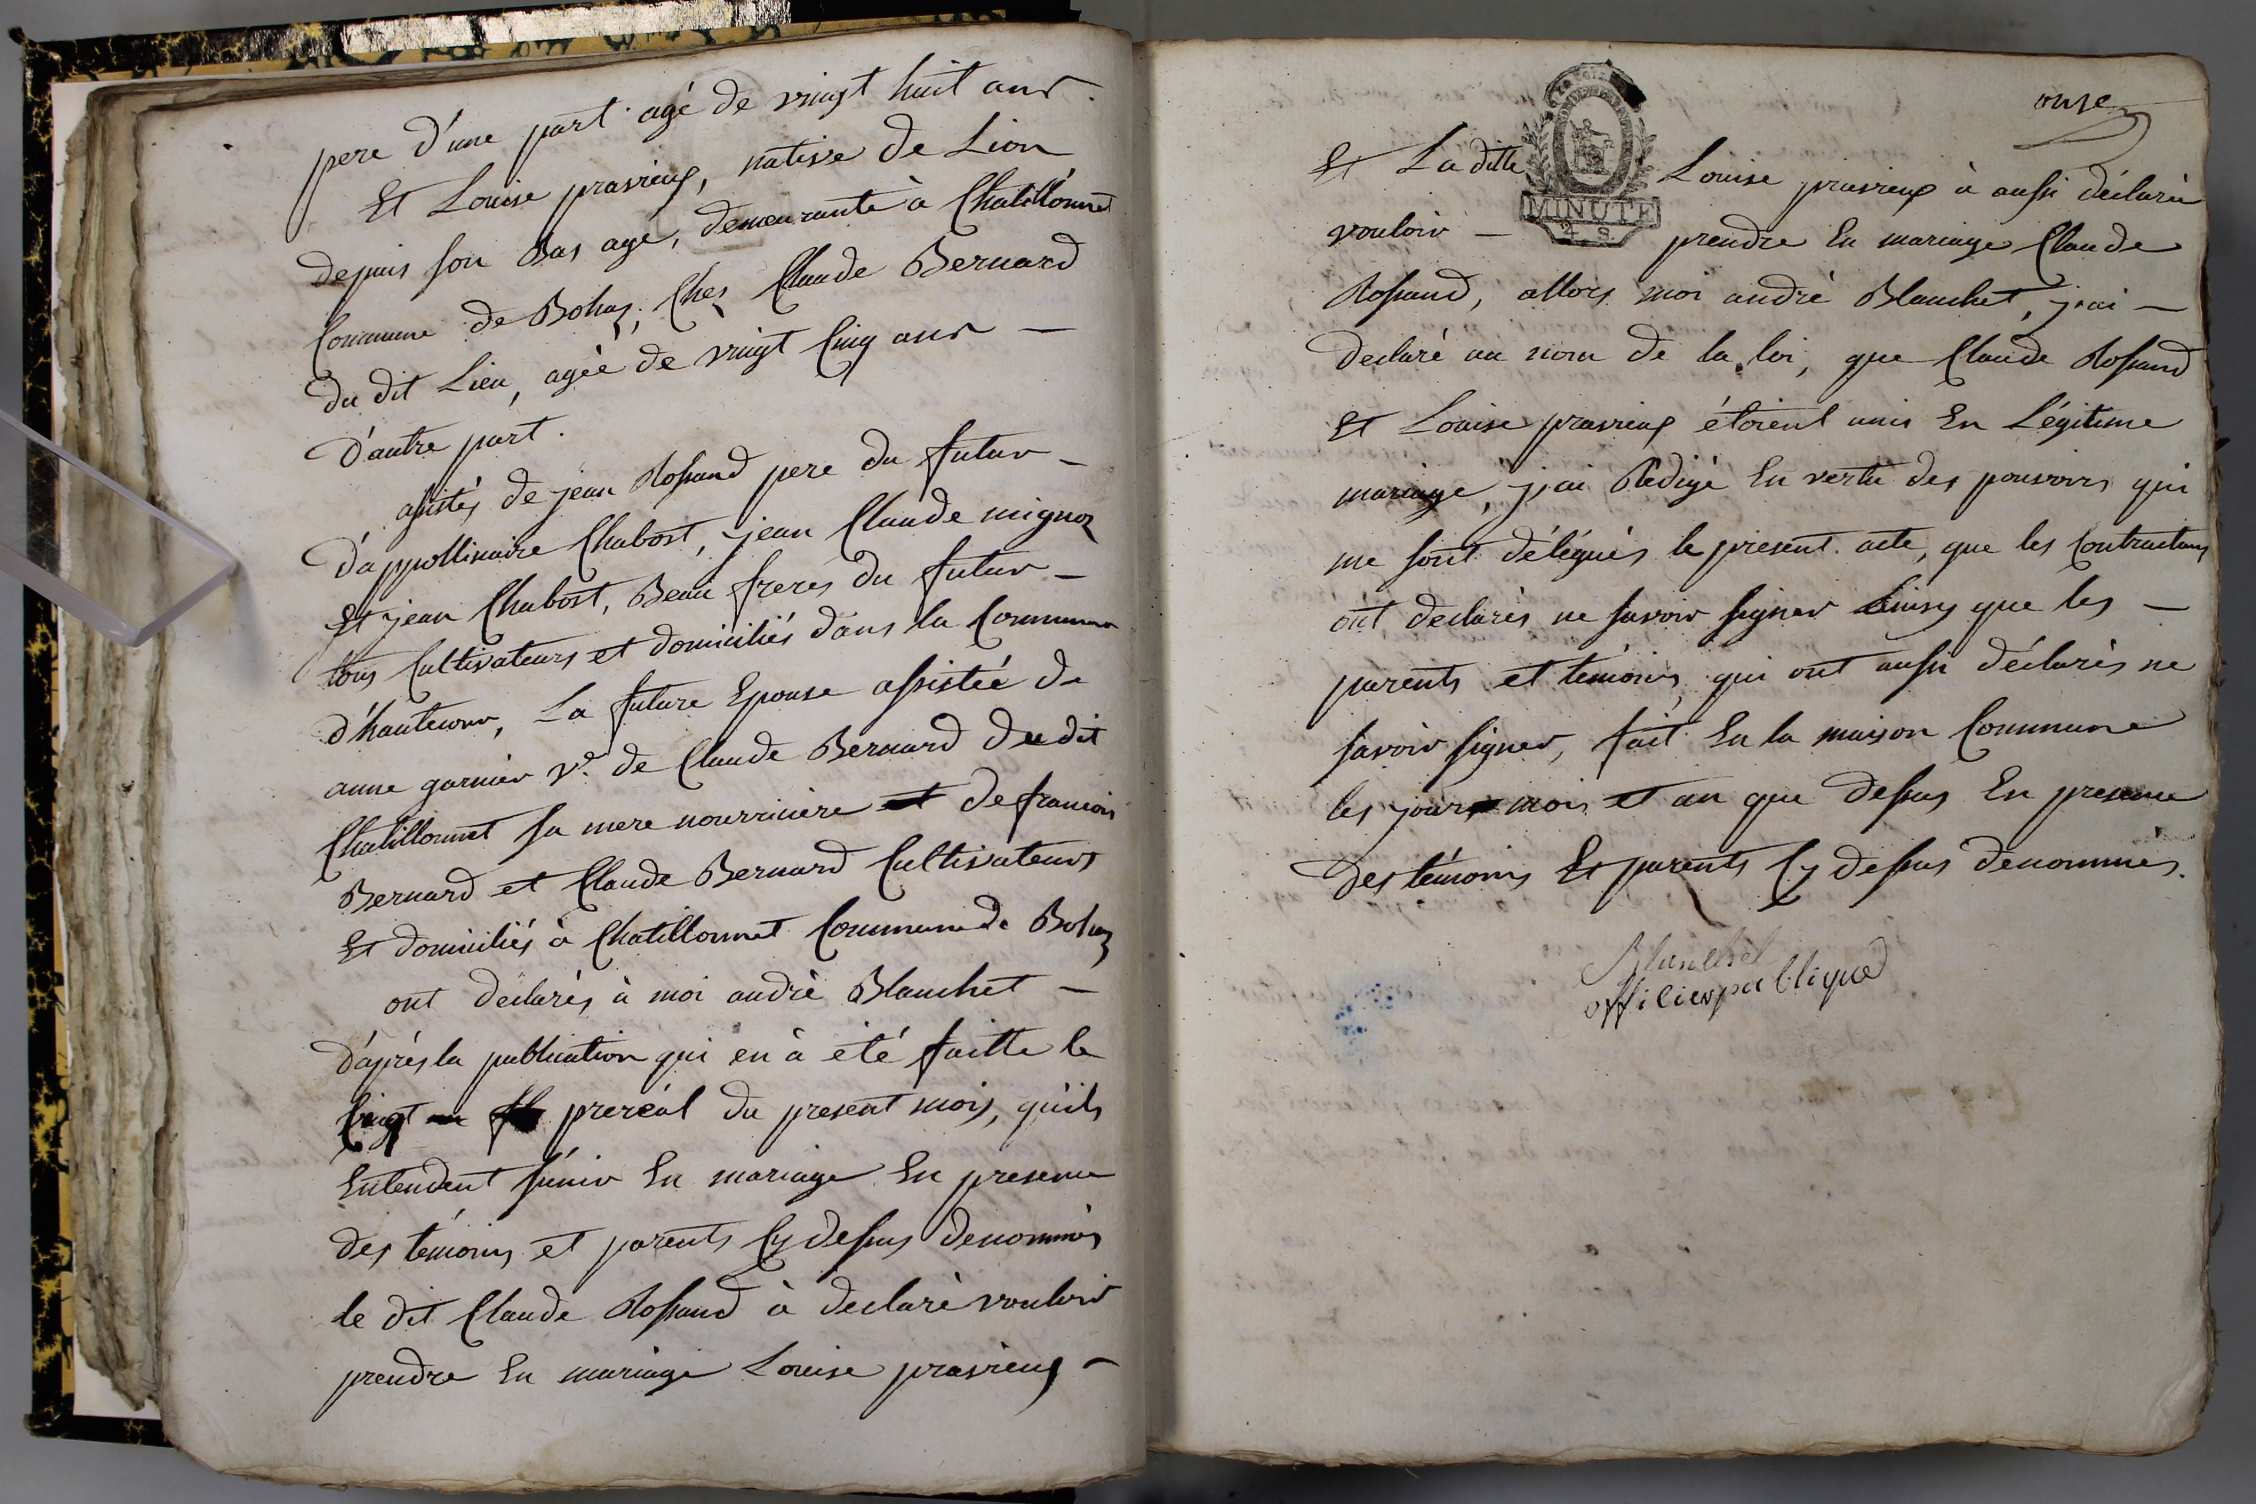 pere d'une part agé de vingt huit ans.
Et Louise pravieux, native de Lion
depuis son Bas agé, demeurante à Chatillonnet
Commune de Bohas, Chez Claude Bernard
du dit Lieu, agée de vingt Cinq ans —
D'autre part.
assistés de jean Rossand pere du futur —
D'appollinaire Chabost, jean Claude mignoz
Et jean Chabost, Beau freres du futur —
tous Cultivateurs et domiciliés dans la Commune
d'hautecour, La future Epouse assistée de
anne garnier vᵉ. de Claude Bernard du dit
Chatillonnet sa mere nourriciere et de francois
Bernard et Claude Bernard Cultivateurs
Et domiciliés à Chatillonnet Commune de Bohas
ont declarés à moi andré Blanchet —
D'aprés la publication qui en à été faitte le
vingt preréal du present mois, qu'ils
Entendent s'unir En mariage En presence
des témoins et parents Cy dessus denommés
le dit Claude Rossand à declaré vouloir
prendre En mariage Louise pravieux —
onze
MINUTE
Et La ditte Louise pravieux à aussi déclarée
vouloir — prendre En mariage Claude
Rossand, allors moi andré Blanchet, j'ai —
Declaré au nom de la loi, que Claude Rossand
Et Louise pravieux étoient unis En Légitime
mariage, j'ai Rédigé En vertu des pouvoirs qui
me sont délégués le present acte, que les Contractans
ont declarés ne savoir signer Ainsy que les —
parents et témoins, qui ont aussi déclarés ne
savoir signer, fait En la maison Commune
les jour mois et an que dessus En presence
des témoins Et parents Cy dessus denommés.
Blanchet
officier publique